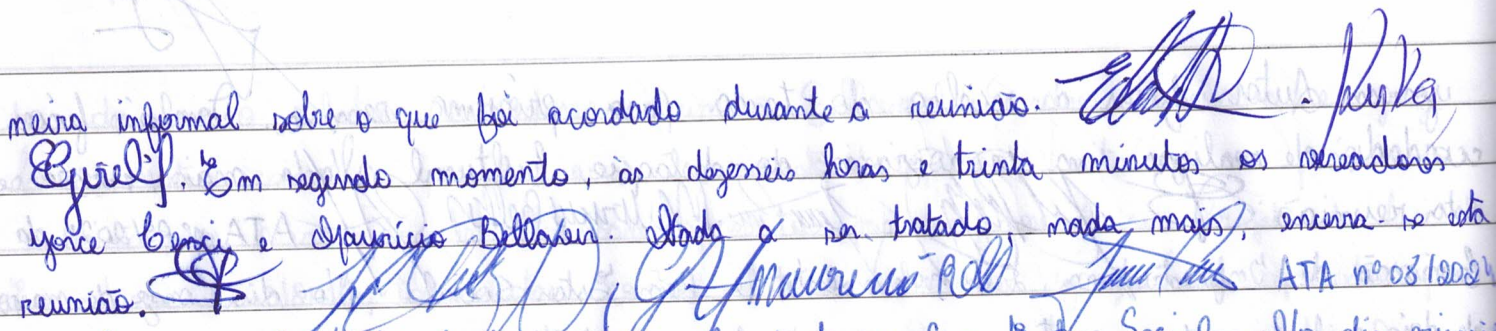 neira informal sobre o que foi acordado durante a reunião.
Em segundo momento, às dezesseis horas e trinta minutos os vereadores
Joice Benci e Maurício Bellaver. Nada a ser tratado, nada mais, encerra-se esta
reunião. ATA nº 03/2024